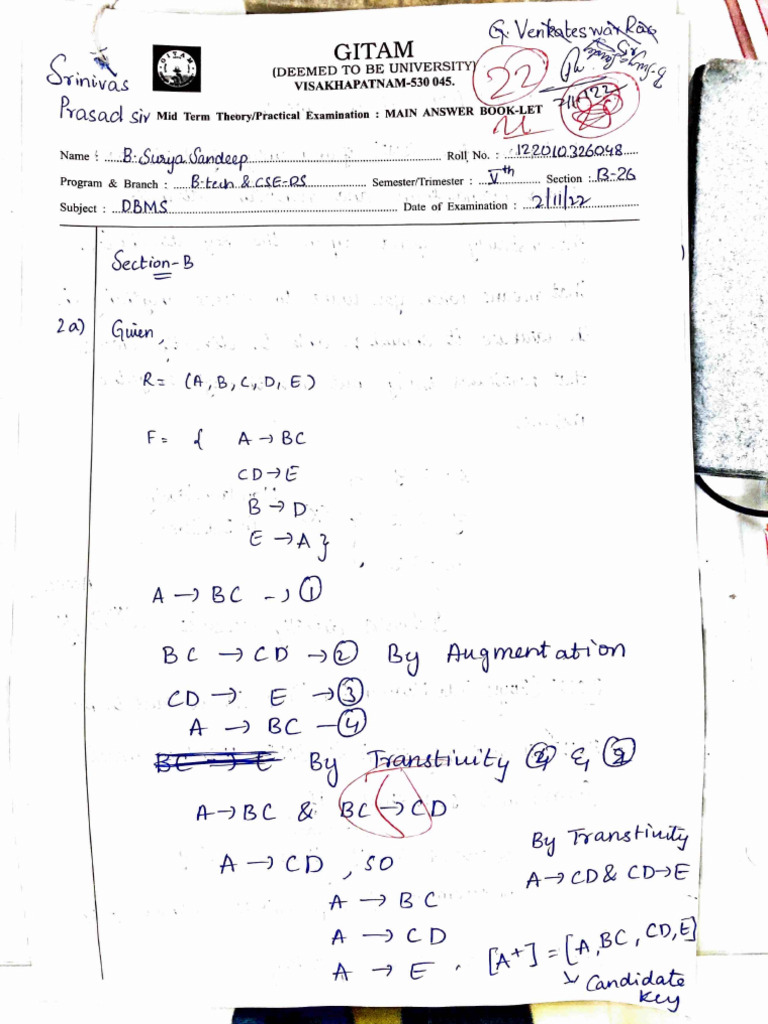 G. Venkateswar Rao
GITAM
(DEEMED TO BE UNIVERSITY)
VISAKHAPATNAM-530 045.
22
Srinivas
Prasad sir
Mid Term Theory/Practical Examination : MAIN ANSWER BOOK-LET
Name : B. Surya Sandeep Roll No. : 122010326048
Program & Branch : B-tech & CSE-DS Semester/Trimester : Vth Section : B-26
Subject : DBMS Date of Examination : 2/11/22
Section-B
2a) Given,
R= (A, B, C, D, E)
F= { A → BC
CD → E
B → D
E → A }
A → BC -> ①
BC → CD → ② By Augmentation
CD → E → ③
A → BC - ④
BC → E By Transtivity ④ & ②
A → BC & BC → CD
By Transtivity
A → CD , SO
A → CD & CD → E
A → BC
A → CD
A → E . [A+] = [A, BC, CD, E]
↘ Candidate
key